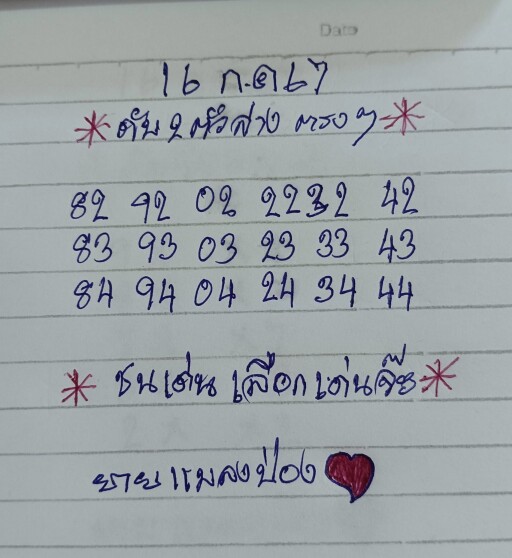 Date
16 ก.ค 67
ดับ 2 ตัวล่าง ตรง ๆ
82 92 02 22 32 42
83 93 03 23 33 43
84 94 04 24 34 44
ชนเด่น เลือกเด่นจ๊ะ
ยายแมลงป่อง